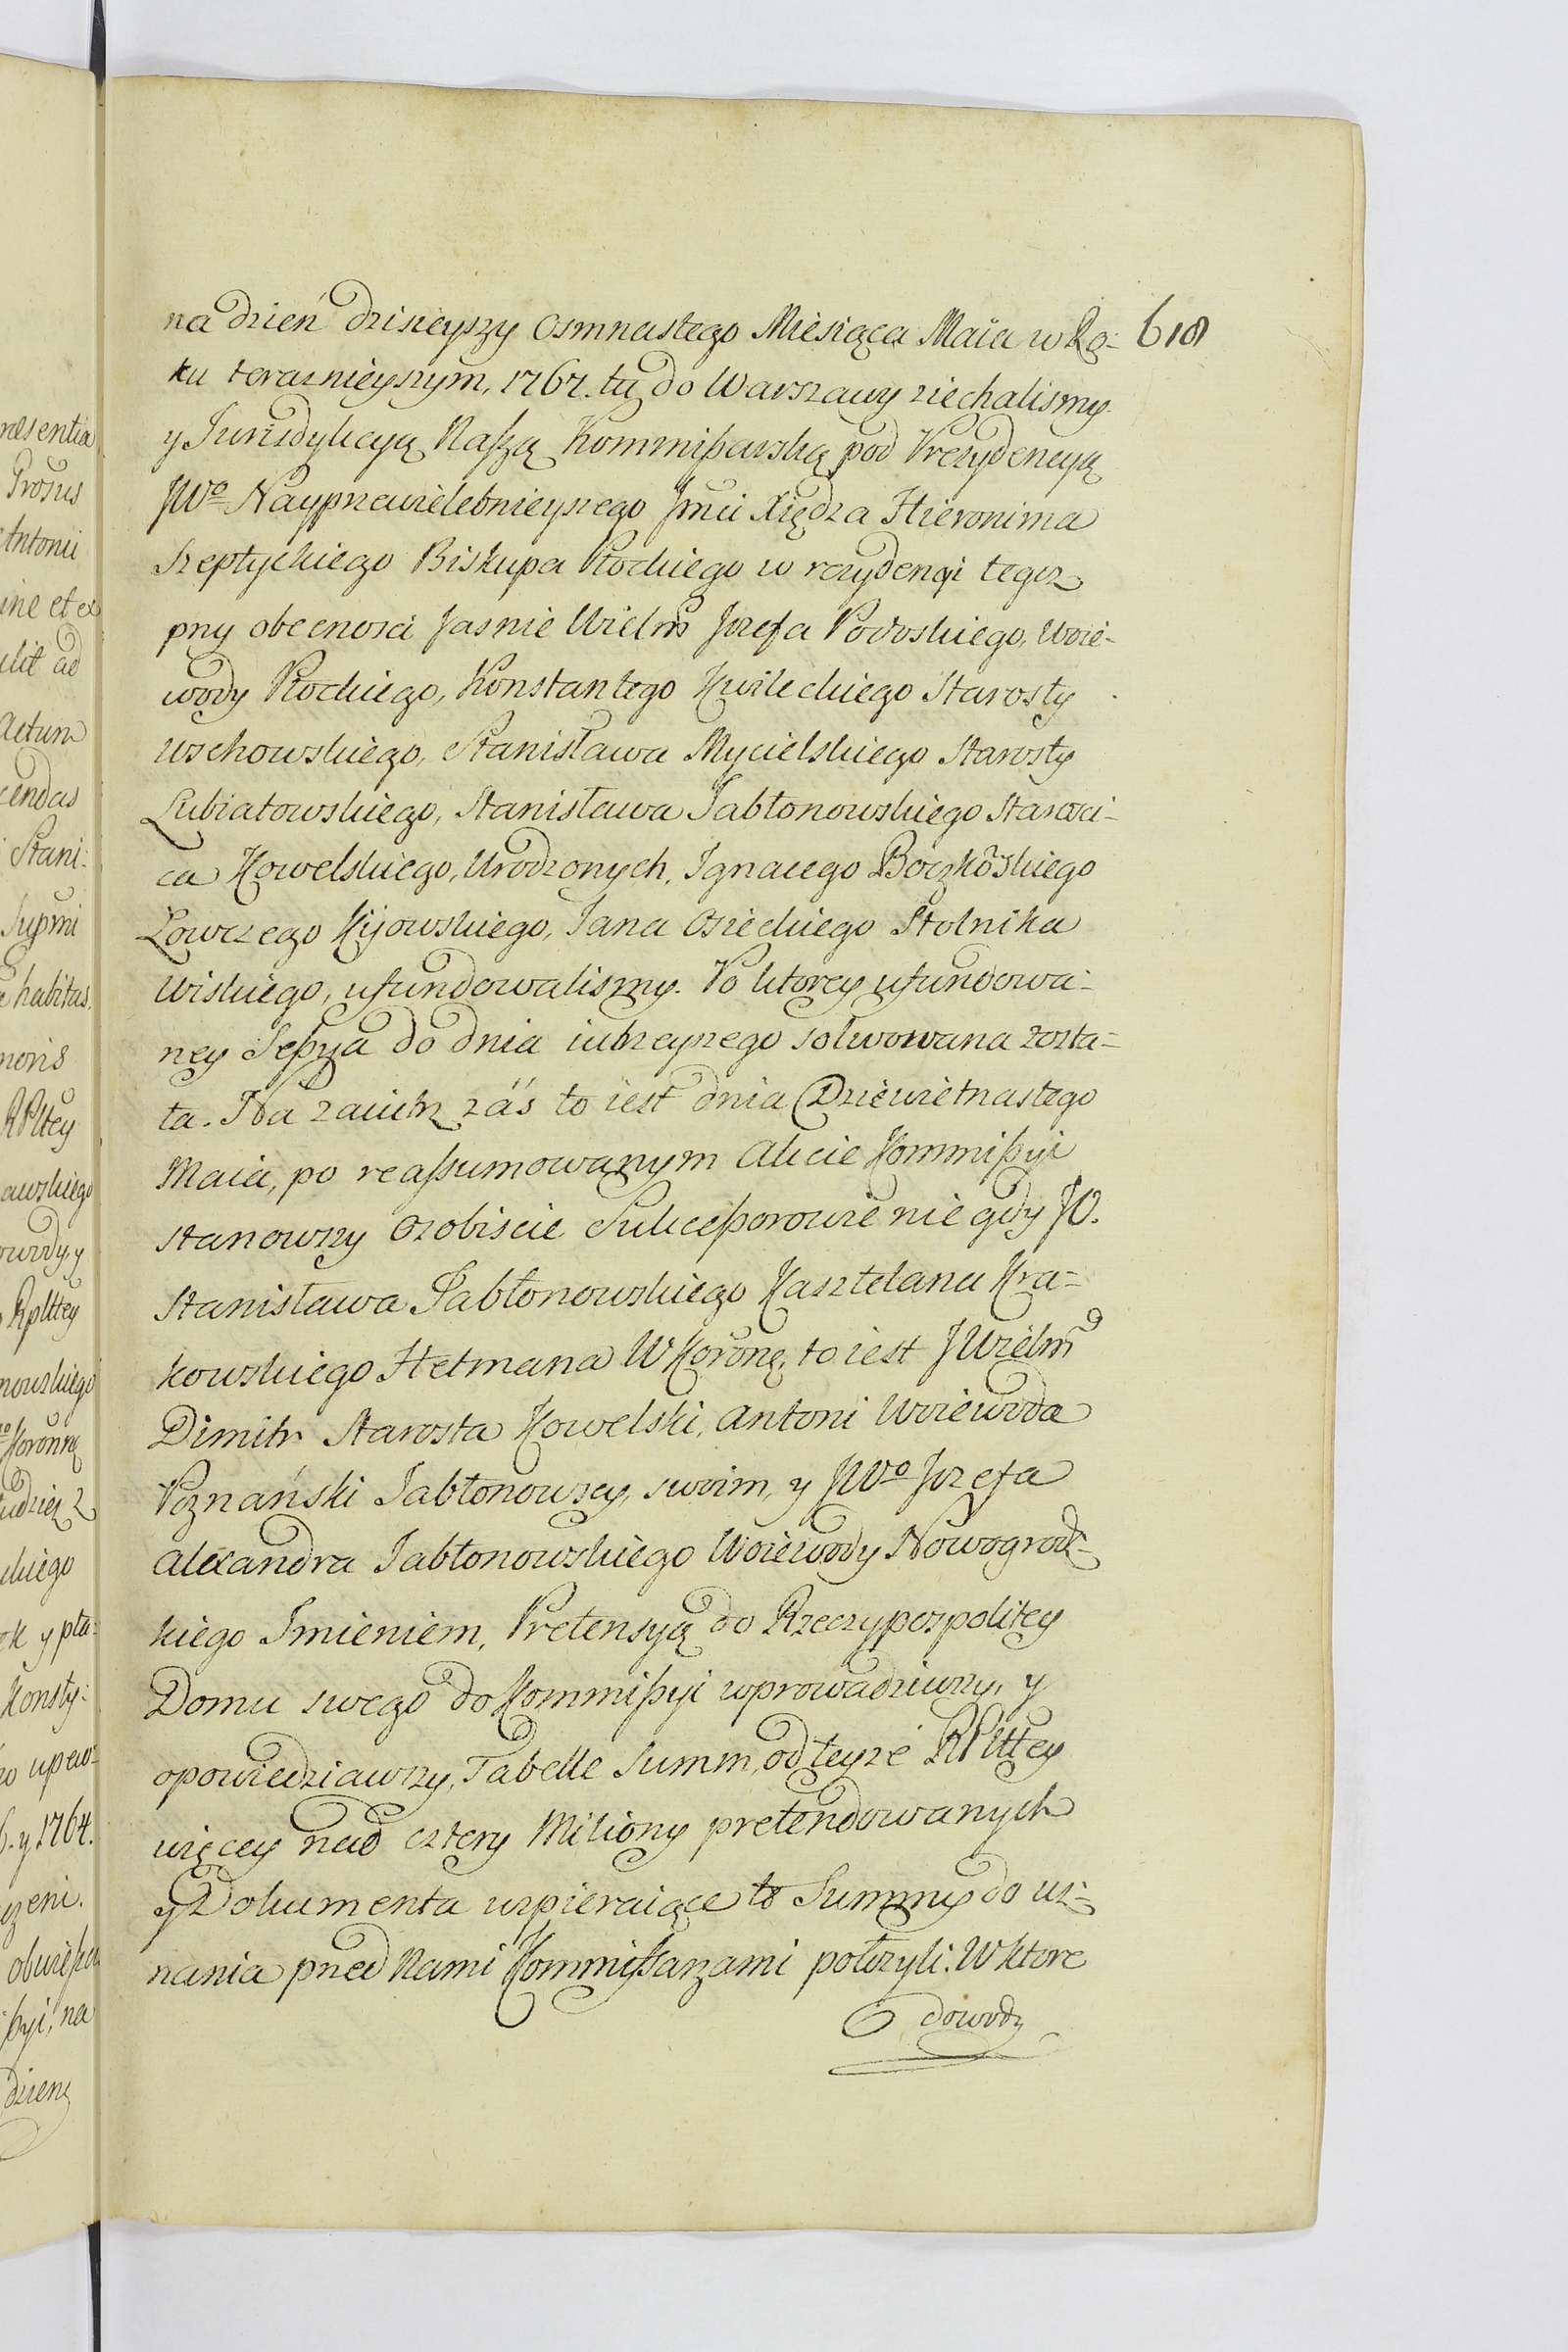 618
na dzień dzisieyszy Osmnastego Miesiąca Maia w Ro-
ku teraznieyszym, 1767. tu do Warszawy ziechalismy
y Jurisdykcyą Naszą Kommißarską pod Prezydencyą
JWo Nayprzewielebnieyszego Jmci Xiędza Hieronima
Szeptyckiego Biskupa Płockiego w rezydencyi tegoz
przy obecnosci Jasnie Wielm Jozefa Podoskiego, Woie-
wody Płockiego, Konstantego Kwileckiego Starosty
wschowskiego, Stanisława Mycielskiego Starosty
Lubiatowskiego, Stanisława Jabłonowskiego Starosci-
ca Kowelskiego, Urodzonych, Ignacego Boczkõskiego
Łowczego Kijowskiego, Jana Osieckiego Stolnika
Wiskiego, ufundowalismy. Po ktorey ufundowa-
ney Seßya do dnia iutrzeyszego solwowana zosta-
ła. Na zaiutrz zaś to iest dnia Dziewietnastego
Maia, po reaßumowanym Akcie Kommißyi
stanowszy Osobiscie Sukceßorowie nie gdy JO.
Stanisława Jabłonowskiego Kasztelana Kra-
kowskiego Hetmana W Koronę, to iest JWielm
Dimitr Starosta Kowelski, Antoni Woiewoda
Poznański Jabłonowscy, swoim, y JWo Jozefa
Alexandra Jabłonowskiego Woiewody Nowogrodz-
kiego Imieniem, Pretensyą do Rzeczypospolitey
Domu swego do Kommißyi wprowadziwszy, y
opowiedziawszy, Tabelle Summ, od teyze RPlttey
więcey nad cztery Miliony pretendowanych
y Dokumenta wspieraiące te Summy do uz-
nania przed Nami Kommißarzami połozyli. W ktore
dowody
resentia
Prosus
Antonii
ine et ex
ulit ad
Actum
cendas
Stani-
Supmi
e habitas,
noris
RPlttey
awskiego
owody, y
Rplttey
nowskiego
Koronne
udziez z
ckiego
ok y pła-
Konsty-
o upew-
6. y 1764.
czeni.
ßyi, na
dzień